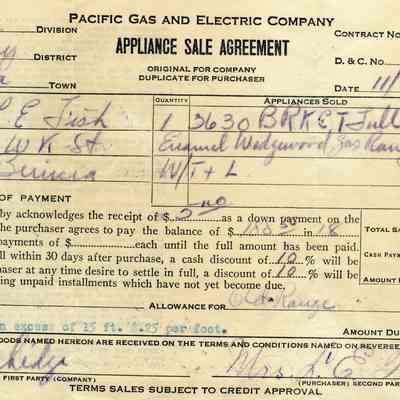 PACIFIC GAS AND ELECTRIC COMPANY
DIVISION
APPLIANCE SALE AGREEMENT
CONTRACT NO
DISTRICT
ORIGINAL FOR COMPANY
DUPLICATE FOR PURCHASER
D. & C. NO.
TOWN
DATE 11/
QUANTITY
APPLIANCES SOLD
E Fish
1 3630 BRKET Full
W K St.
Enamel Wedgewood Gas Rang
Benicia
W/T + L
OF PAYMENT
by acknowledges the receipt of $ 5 no as a down payment on the
he purchaser agrees to pay the balance of $ in 18
payments of $ each until the full amount has been paid.
ll within 30 days after purchase, a cash discount of 10 % will be
haser at any time desire to settle in full, a discount of 10 % will be
ing unpaid installments which have not yet become due.
TOTAL SA
CASH PAYM
AMOUNT
ALLOWANCE FOR Old Range
n excess of 15 ft. $.25 per foot.
AMOUNT DU
OODS NAMED HEREON ARE RECEIVED ON THE TERMS AND CONDITIONS NAMED ON REVERSE
Mrs. L. E.
FIRST PARTY (COMPANY)
(PURCHASER) SECOND PAR
TERMS SALES SUBJECT TO CREDIT APPROVAL